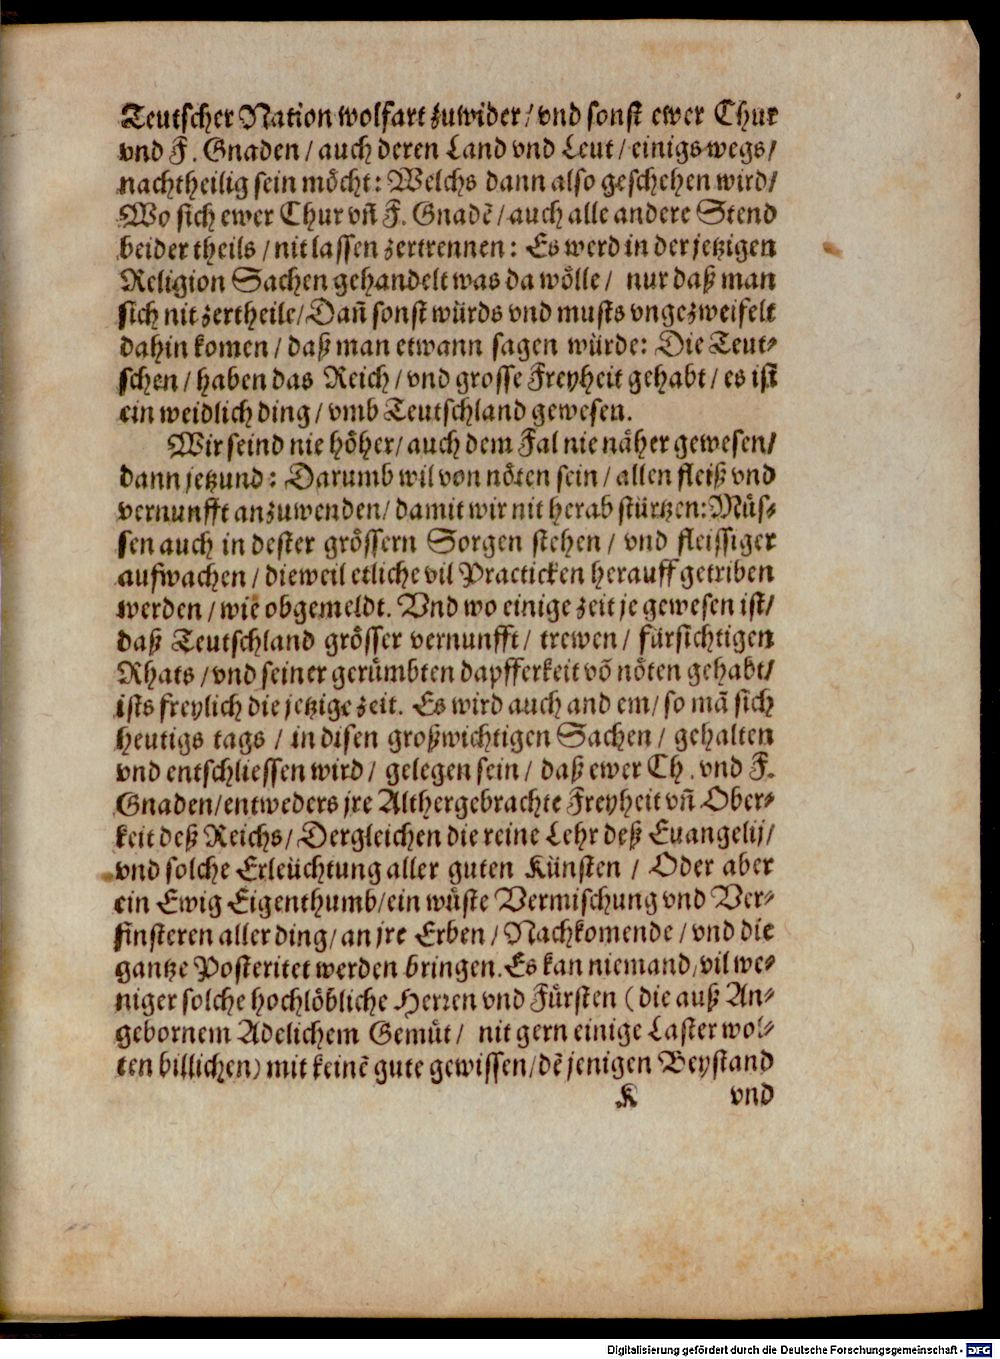 Teutscher Nation wolfart zuwider / vnd sonst ewer Chur
vnd F. Gnaden / auch deren Land vnd Leut / einigs wegs /
nachtheilig sein möcht: Welchs dann also geschehen wird /
Wo sich ewer Chur vñ F. Gnadẽ / auch alle andere Stend
beider theils / nit lassen zertrennen: Es werd in der jetzigen
Religion Sachen gehandelt was da wölle / nur daß man
sich nit zertheile / Dañ sonst würds vnd musts vngezweifelt
dahin komen / daß man etwann sagen würde: Die Teut-
schen / haben das Reich / vnd grosse Freyheit gehabt / es ist
ein weidlich ding / vmb Teutschland gewesen.
Wir seind nie höher / auch dem Fal nie näher gewesen /
dann jetzund: Darumb wil von nöten sein / allen fleiß vnd
vernunfft anzuwenden / damit wir nit herab stürtzen: Müs-
sen auch in dester grössern Sorgen stehen / vnd fleissiger
aufwachen / dieweil etliche vil Practicken herauff getriben
werden / wie obgemeldt. Vnd wo einige zeit je gewesen ist /
daß Teutschland grösser vernunfft / trewen / fürsichtigen
Rhats / vnd seiner gerümbten dapfferkeit võ nöten gehabt /
ists freylich die jetzige zeit. Es wird auch and em / so mã sich
heutigs tags / in disen großwichtigen Sachen / gehalten
vnd entschliessen wird / gelegen sein / daß ewer Ch. vnd F.
Gnaden / entweders jre Althergebrachte Freyheit vñ Ober-
keit deß Reichs / Dergleichen die reine Lehr deß Euangelij /
vnd solche Erleüchtung aller guten Künsten / Oder aber
ein Ewig Eigenthumb / ein wüste Vermischung vnd Ver-
finsteren aller ding / an jre Erben / Nachkomende / vnd die
gantze Posteritet werden bringen. Es kan niemand / vil we-
niger solche hochlöbliche Herren vnd Fürsten (die auß An-
gebornem Adelichem Gemüt / nit gern einige Laster wol-
ten billichen) mit keinẽ gute gewissen / dẽ jenigen Beystand
K vnd
Digitalisierung gefördert durch die Deutsche Forschungsgemeinschaft - DFG